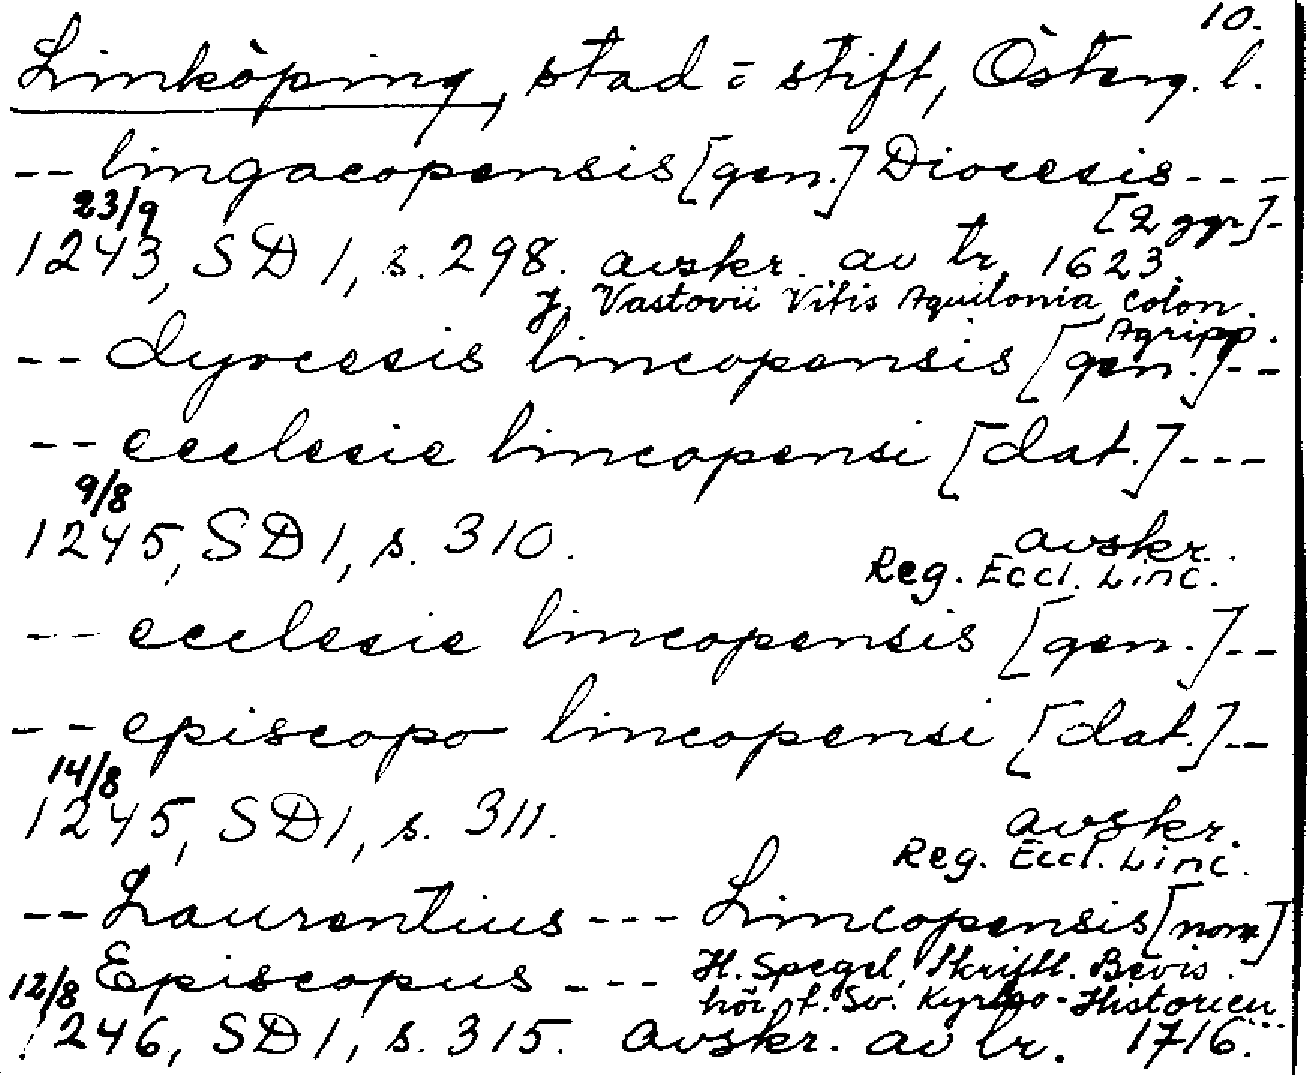 10.
Linköping, stad o stift, Österg. l.
-- lingacopensis [gen.] Diocesis ---
[2 ggr]-
23/9
1243, SD 1, s. 298. avskr. av tr. 1623.
J. Vastovii Vitis Aquilonia, Colon.
Agripp.
-- dyocesis lincopensis [gen.]--
-- ecclesie lincopensi [dat.]---
9/8
1245, SD 1, s. 310. avskr.
Reg. Eccl. Linc.
-- ecclesie lincopensis [gen.]--
-- episcopo lincopensi [dat.]--
14/8
1245, SD 1, s. 311. avskr.
Reg. Eccl. Linc.
-- Laurentius --- Lincopensis [nom]
Episcopus --- H. Spegel, Skriftl. Bevis
12/8 höi. t. Sv. Kyrkio-Historien...
1246, SD 1, s. 315. avskr. av tr. 1716.